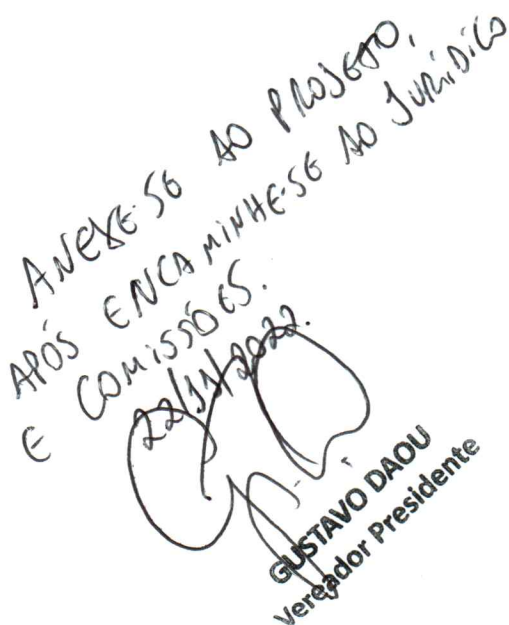 ANEXE-SE AO PROJETO,
APÓS ENCAMINHE-SE AO JURÍDICO
E COMISSÕES.
22/11/2022.
GUSTAVO DAOU
Vereador Presidente